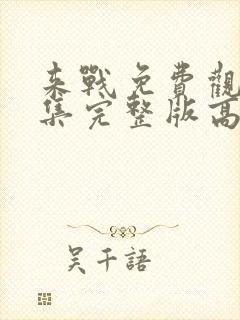 来戰免費觀
集完整版高
吳千語